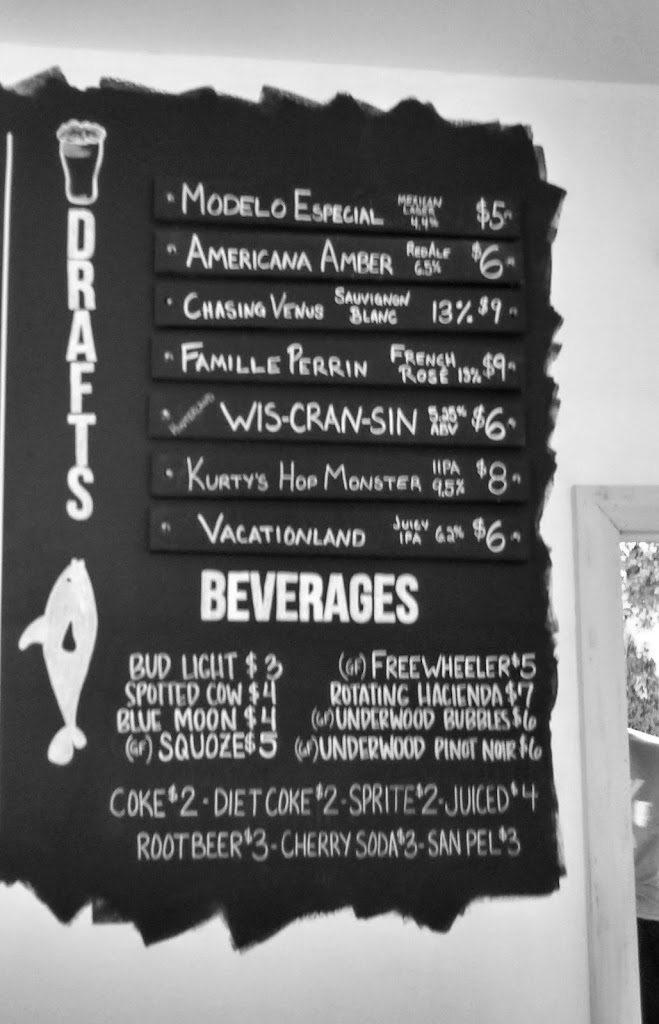 DRAFTS
MODELO ESPECIAL MEXICAN LAGER 4.4% $5
AMERICANA AMBER RED ALE 6.5% $6
CHASING VENUS SAUVIGNON BLANC 13% $9
FAMILLE PERRIN FRENCH ROSÉ 13% $9
HINTERLAND WIS-CRAN-SIN 5.25% ABV $6
KURTY'S HOP MONSTER IIPA 9.5% $8
VACATIONLAND JUICY IPA 6.2% $6
BEVERAGES
BUD LIGHT $3 (GF) FREEWHEELER $5
SPOTTED COW $4 ROTATING HACIENDA $7
BLUE MOON $4 (GF) UNDERWOOD BUBBLES $6
(GF) SQUOZE $5 (GF) UNDERWOOD PINOT NOIR $6
COKE $2 - DIET COKE $2 - SPRITE $2 - JUICED $4
ROOT BEER $3 - CHERRY SODA $3 - SAN PEL $3